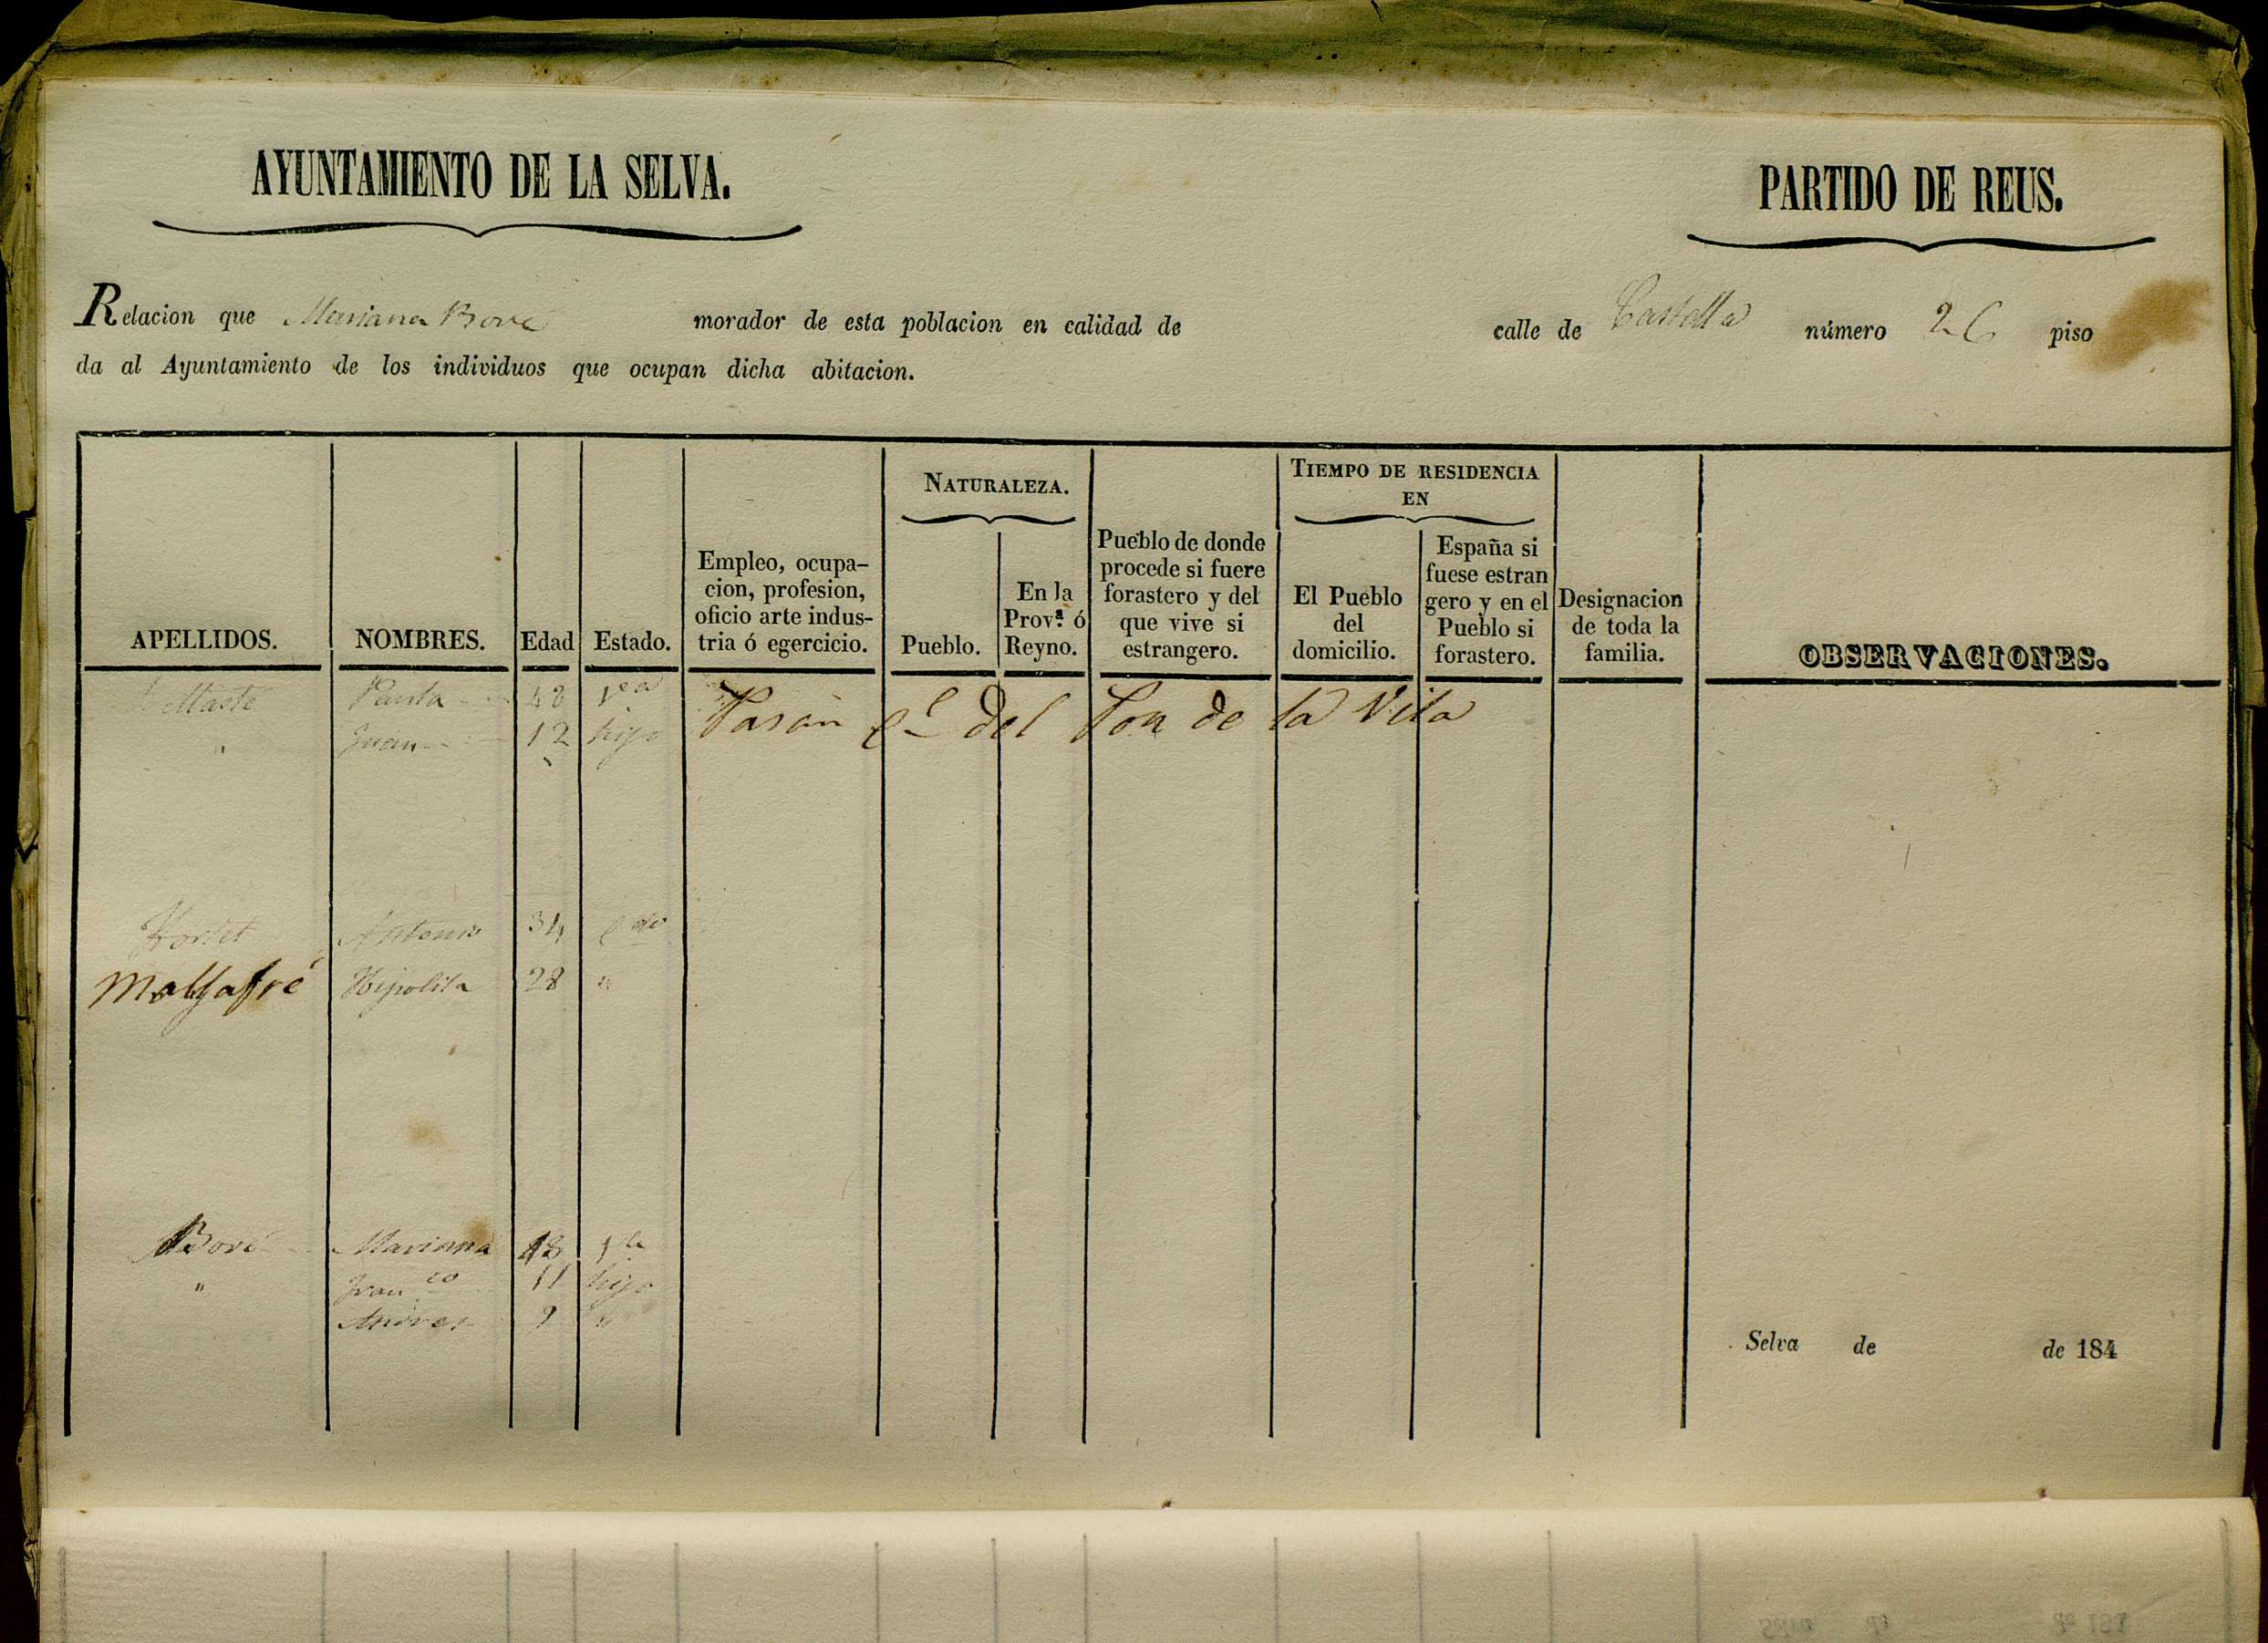 AYUNTAMIENTO DE LA SELVA. PARTIDO DE REUS.
Relacion que Mariana Bové morador de esta poblacion en calidad de calle de Castella número 26 piso
da al Ayuntamiento de los individuos que ocupan dicha abitacion.
APELLIDOS.
NOMBRES.
Edad
Estado.
Empleo, ocupa-
cion, profesion,
oficio arte indus-
tria ó egercicio.
NATURALEZA.
Pueblo.
En la
Prov.ª ó
Reyno.
Pueblo de donde
procede si fuere
forastero y del
que vive si
estrangero.
TIEMPO DE RESIDENCIA
EN
El Pueblo
del
domicilio.
España si
fuese estran
gero y en el
Pueblo si
forastero.
Designacion
de toda la
familia.
OBSERVACIONES.
Paula 48 v.da
" Juan 12 hijo
Pasan del de la Vila
Hortet Antonio 34 c.do
Mallafré Hipolita 28 "
Bové Mariana 48
" Fran.co 11 hijo
Andres 9 "
Selva de de 184